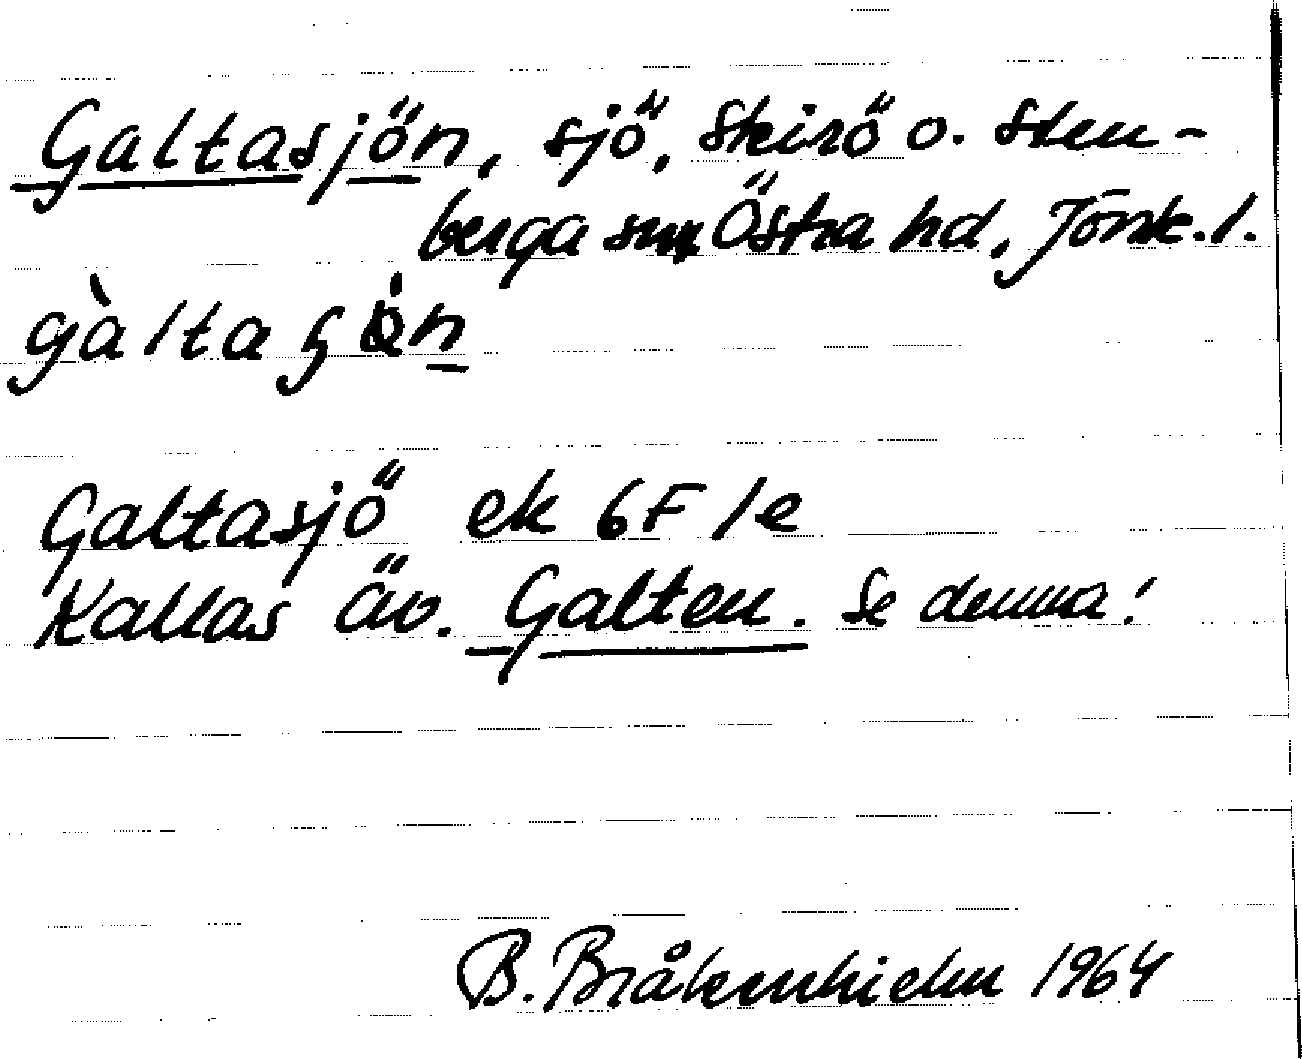 Galtasjön, sjö, Skirö o. Sten-
berga snr Östra hd, Jönk. l.
Galtasjö ek 6F 1e
Kallas äv. Galten. Se denna!
B. Bråkenhielm 1964